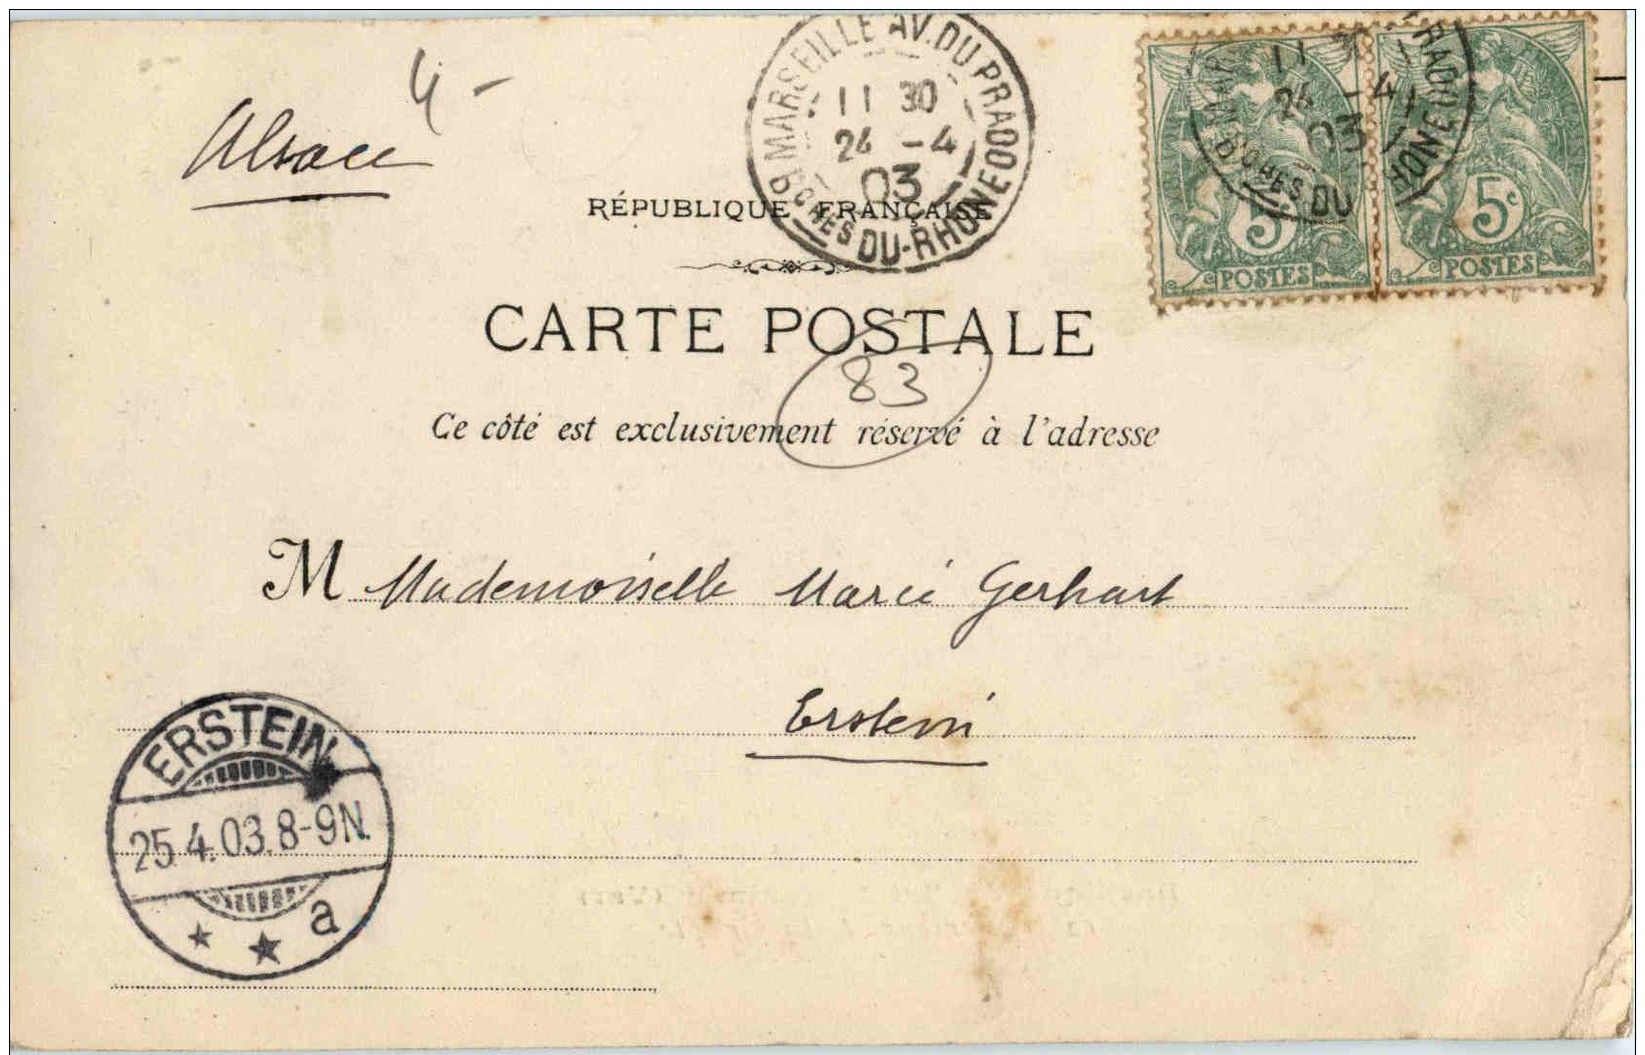 4 -
Alsace
MARSEILLE AV. DU PRADO
11 30
24 -4
03
BCHES DU-RHONE
11 30
24 -4
03
DU
5
POSTES
5c
POSTES
RÉPUBLIQUE FRANÇAISE
CARTE POSTALE
83
Ce côté est exclusivement réservé à l'adresse
M Mademoiselle Marie Gerhart
Erstein
ERSTEIN
25.4.03.8-9N.
a